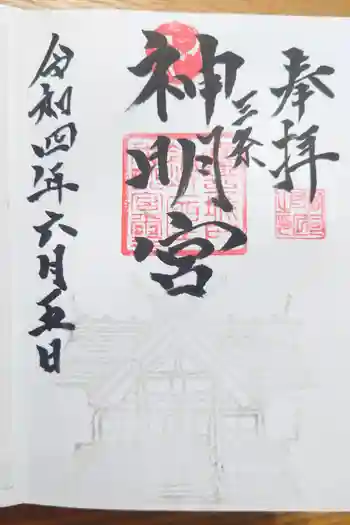 奉拝
三条
神明宮
令和四年六月五日